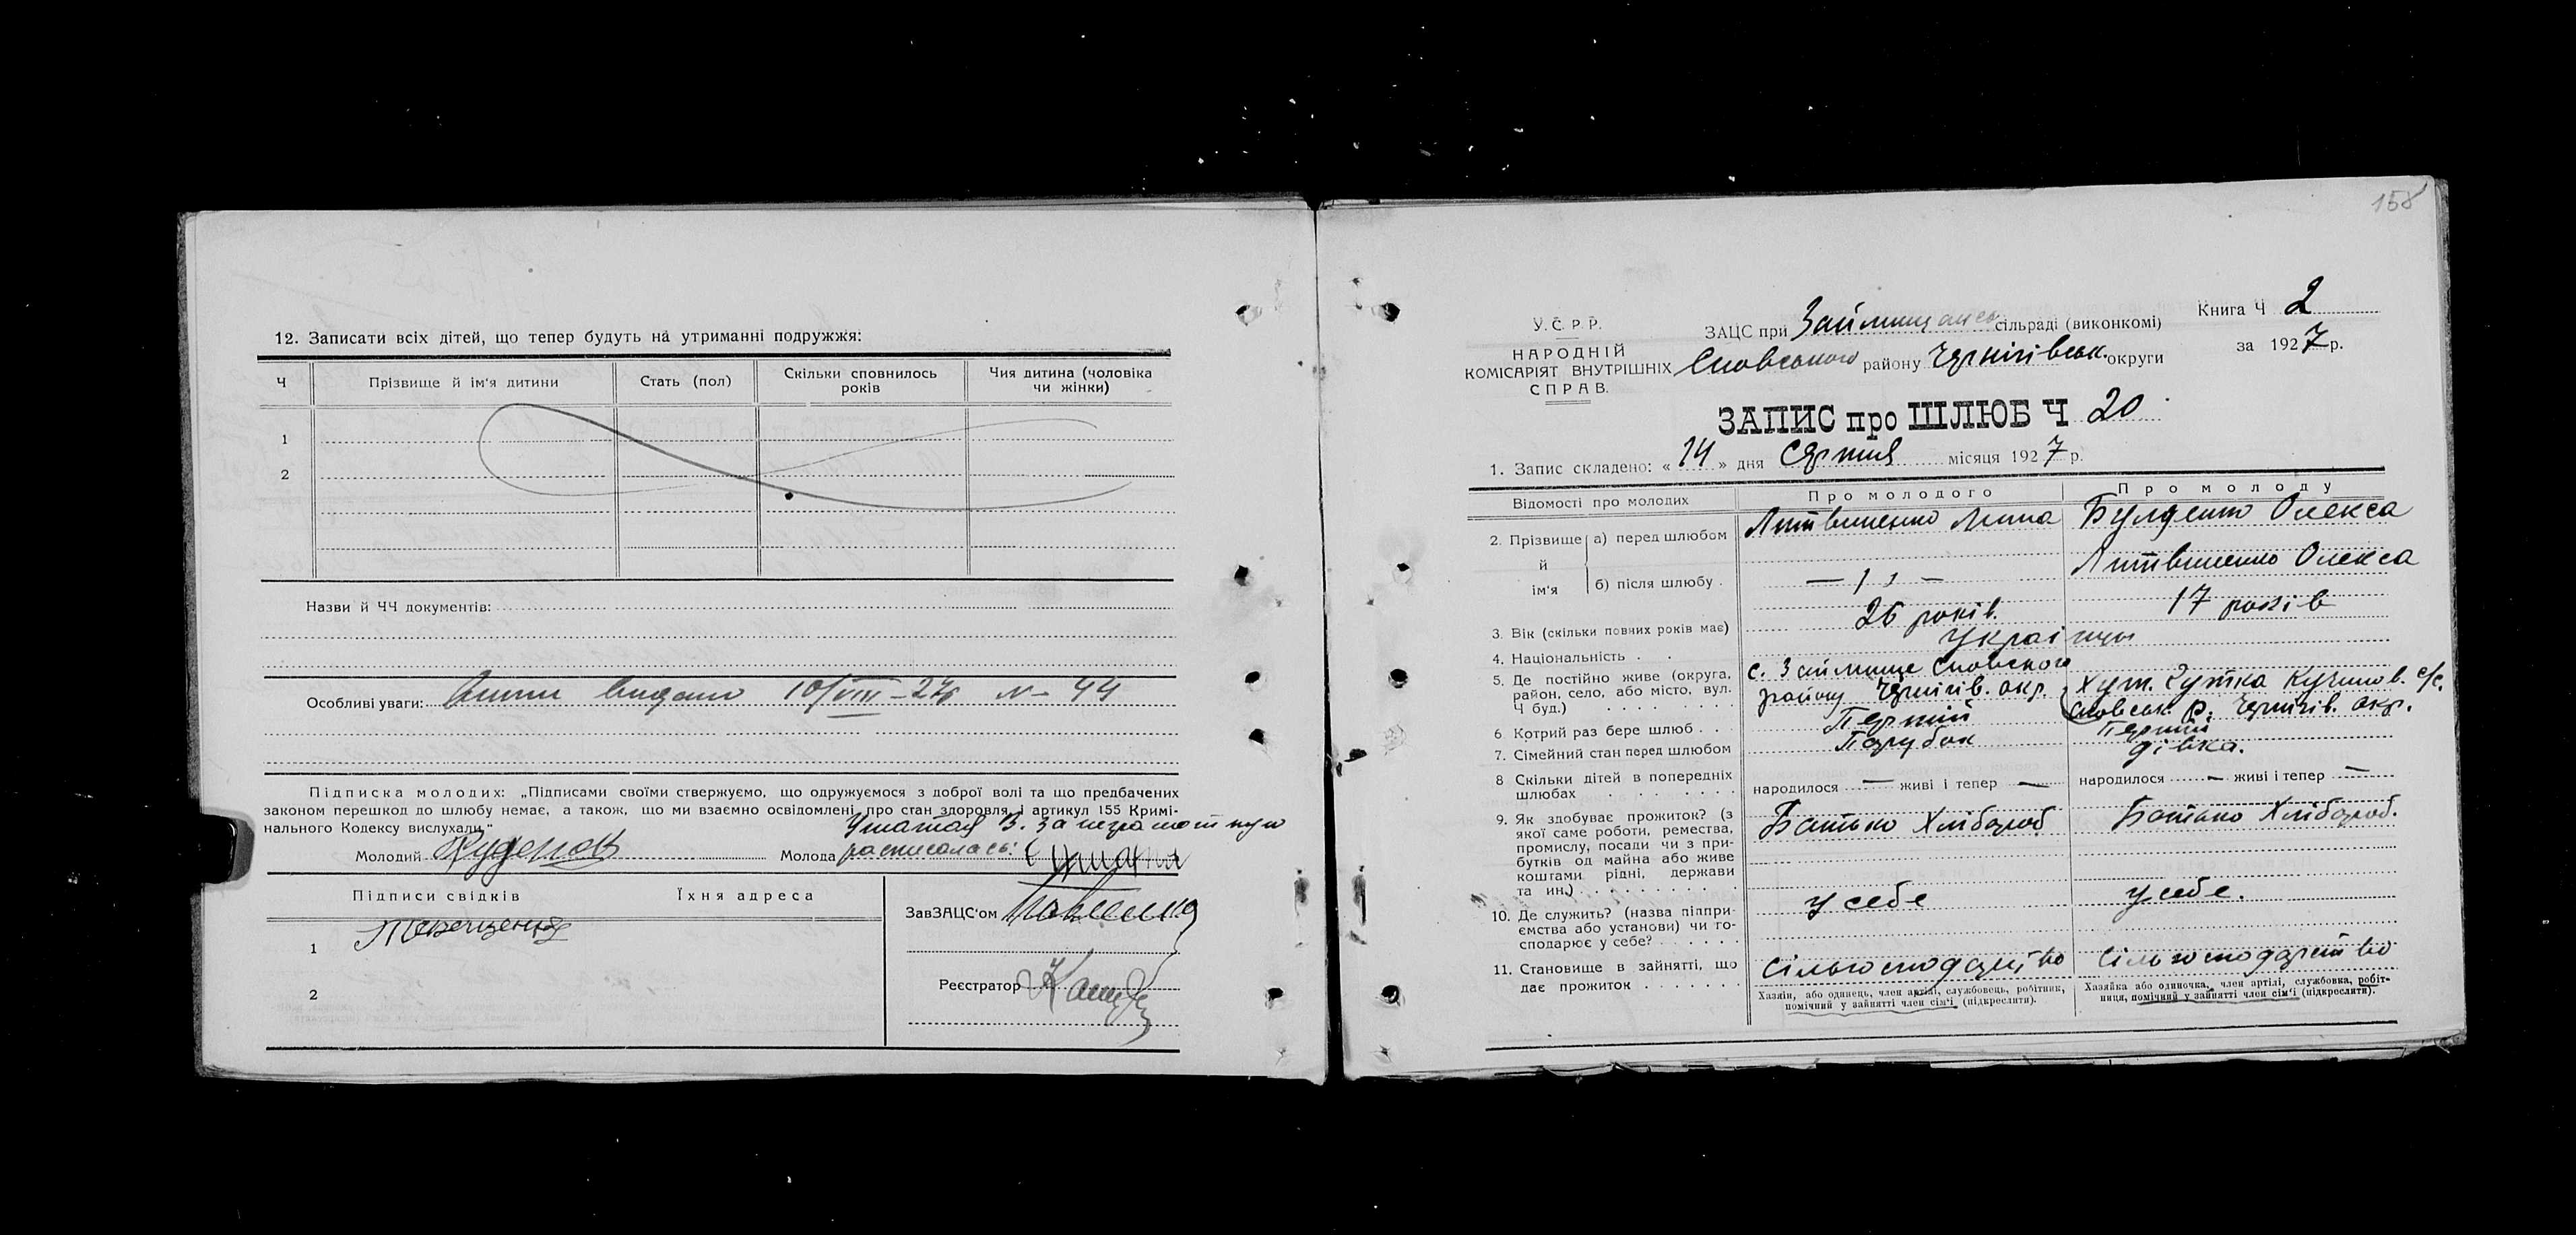 12. Записати всіх дітей, що тепер будуть на утриманні подружжя:
Ч
Прізвище й ім'я дитини
Стать (пол)
Скільки сповнилось
років
Чия дитина (чоловіка
чи жінки)
1
2
Назви й ЧЧ документів:
Особливі уваги: видано 10/VIII-27р № 44
Підписка молодих: „Підписами своїми стверджуємо, що одружуємося з доброї волі та що предбачених
законом перешкод до шлюбу немає, а також, що ми взаємно освідомлені про стан здоровля і артикул 155 Кримі-
нального Кодексу вислухали."
за неграмотную
Молодий
Молода расписалась:
Підписи свідків
Їхня адреса
1
2
ЗавЗАЦС'ом
Реєстратор
158
У.С.Р.Р.
НАРОДНІЙ
КОМІСАРІЯТ ВНУТРІШНІХ
СПРАВ.
ЗАЦС при Займищансь сільраді (виконкомі)
Сновського району Чернігівськ. округи
Книга Ч 2
за 1927 р.
ЗАПИС про ШЛЮБ Ч 20
1. Запис складено: «14» дня Серпня місяця 1927 р.
Відомості про молодих
Про молодого
Про молоду
2. Прізвище й ім'я
а) перед шлюбом
Литвиненко
Олекса
б) після шлюбу
— ,, —
Литвиненко Олекса
3. Вік (скільки повних років має)
26 років.
17 років
4. Національність
Українци
5. Де постійно живе (округа,
район, село, або місто, вул.
Ч буд.)
с. Займище Сновского
району Чернігів. окр.
Хут. Гутка Кучинов. с/с.
Сновськ. р. Чернігів. окр.
6. Котрий раз бере шлюб
Перший
Перший
7. Сімейний стан перед шлюбом
Парубок
дівка.
8 Скільки дітей в попередніх
шлюбах
народилося — живі і тепер —
народилося — живі і тепер —
9. Як здобуває прожиток? (з
якої саме роботи, ремества,
промислу, посади чи з при-
бутків од майна або живе
коштами рідні, держави
та ин.)
Батько Хлібороб
Батько Хлібороб.
10. Де служить? (назва підпри-
ємства або установи) чи го-
сподарює у себе?
у себе
у себе.
11. Становище в зайнятті, що
дає прожиток
Сільгосподарство
Сільгосподарство
Хазяїн, або одинець, член артілі, службовець, робітник,
помічний у зайнятті член сім'ї (підкреслити).
Хазяйка або одиночка, член артілі, службовка, робіт-
ниця, помічний у зайнятті член сім'ї (підкреслити).